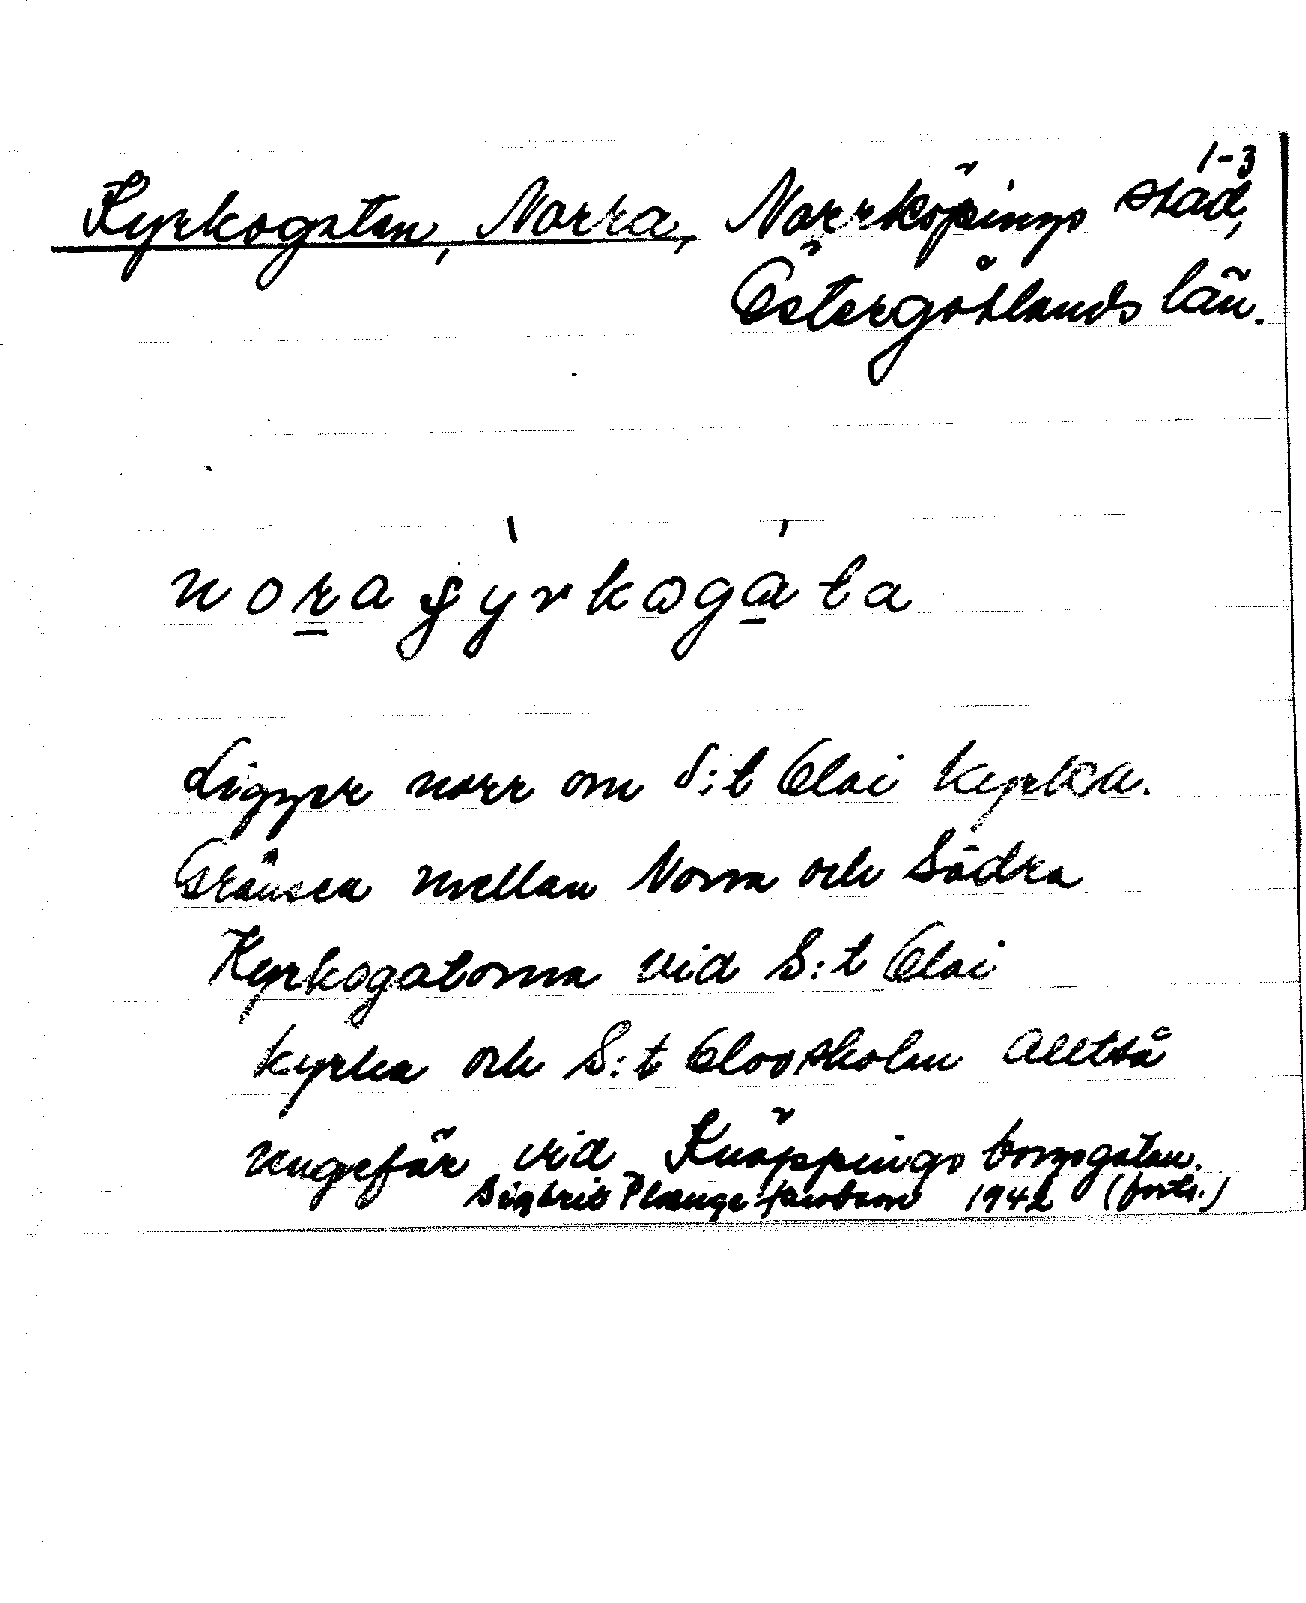 1-3
Kyrkogatan, Norra, Norrköpings stad,
Östergötlands län.
nora yrkogata
Ligger norr om S:t Olai kyrka.
Gränsen mellan Norra och Södra
Kyrkogatorna vid S:t Olai
kyrka och S:t Olovsholm alltså
ungefär vid Knäppingsborgsgatan.
Sigbrit Plænge Jacobson 1942 (forts.)